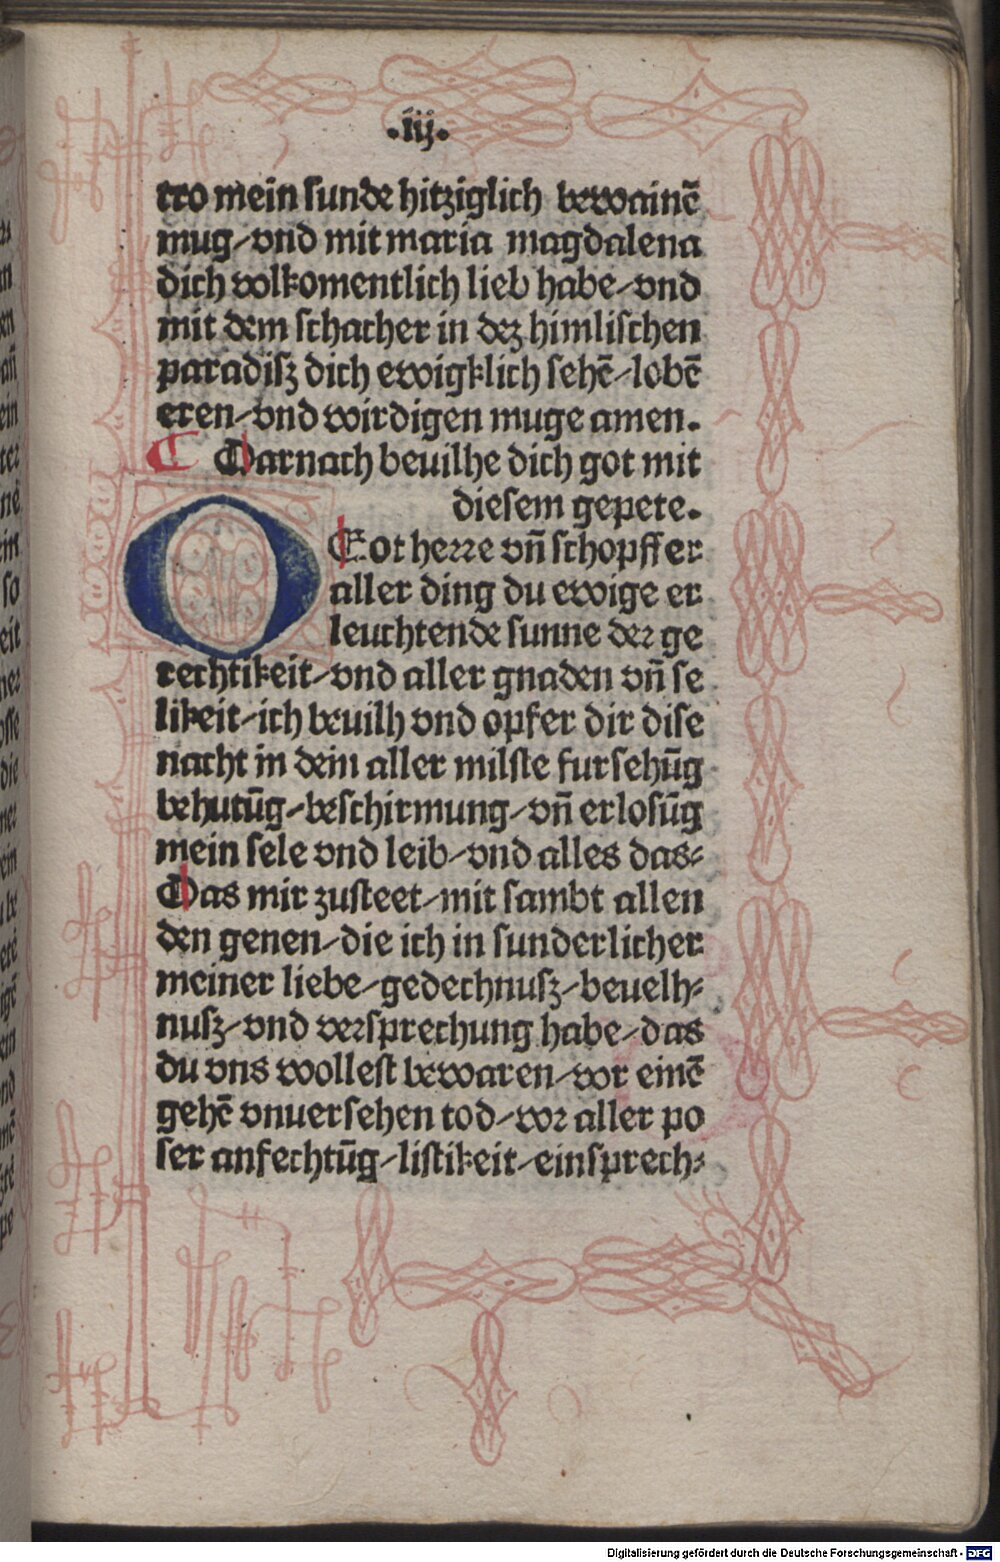 .iij.
tro mein sunde hitziglich bewainē
mug/vnd mit maria magdalena
dich volkomentlich lieb habe/vnd
mit dem schacher in dez himlischen
paradisz dich ewigklich sehē/lobē
eren/vnd wirdigen muge amen.
Darnach beuilhe dich got mit
diesem gepete.
O Got herre vn̄ schopffer
aller ding du ewige er
leuchtende sunne der ge
rechtikeit/vnd aller gnaden vn̄ se
likeit/ich beuilh vnd opfer dir dise
nacht in dein aller milste fursehūg
behutūg/beschirmung/vn̄ erlosūg
mein sele vnd leib/vnd alles das⸗
Das mir zusteet/mit sambt allen
den genen/die ich in sunderlicher
meiner liebe/gedechnusz/beuelh⸗
nusz/vnd versprechung habe/das
du vns wollest bewaren/vor einē
gehē vnuersehen tod/vor aller po
ser anfechtūg/listikeit/einsprech⸗
Digitalisierung gefördert durch die Deutsche Forschungsgemeinschaft - DFG